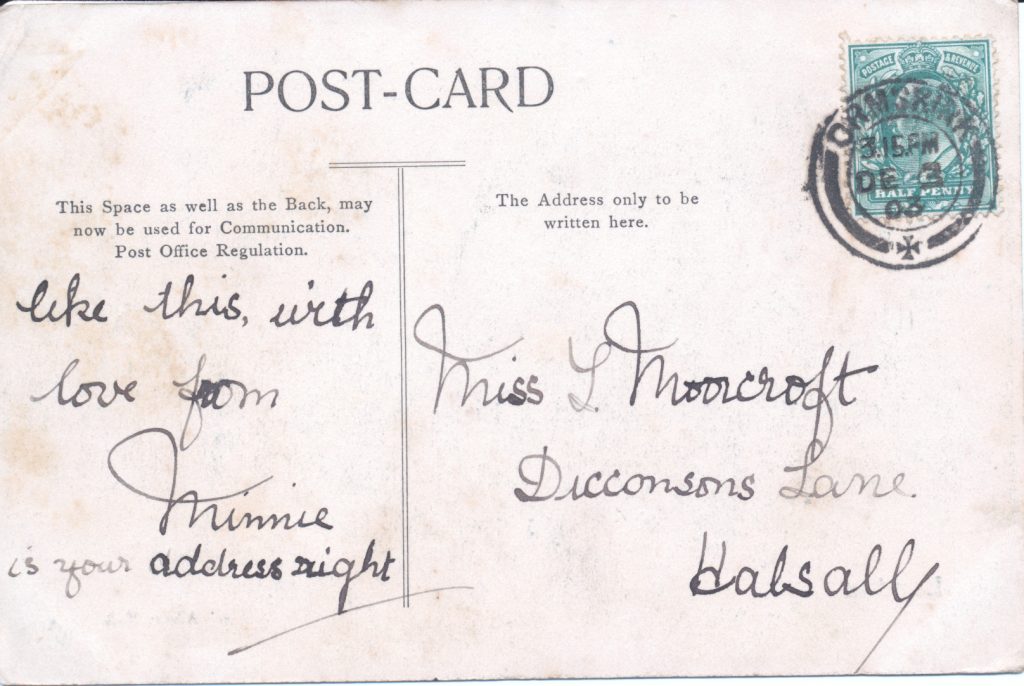 POST-CARD
This Space as well as the Back, may
now be used for Communication.
Post Office Regulation.
The Address only to be
written here.
POSTAGE & REVENUE
HALF PENNY
ORMSKIRK
3.15PM
DE 3
03
like this, with
love from
Minnie
is your address right
Miss L. Moorcroft
Dicconsons Lane
Halsall